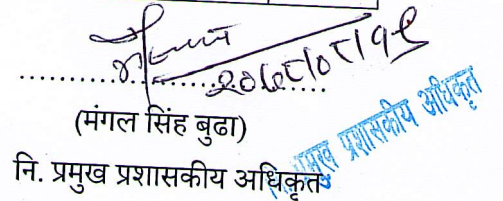 २०७८।०८।१९
(मंगल सिंह बुढा)
नि. प्रमुख प्रशासकीय अधिकृत
प्रमुख प्रशासकीय अधिकृत